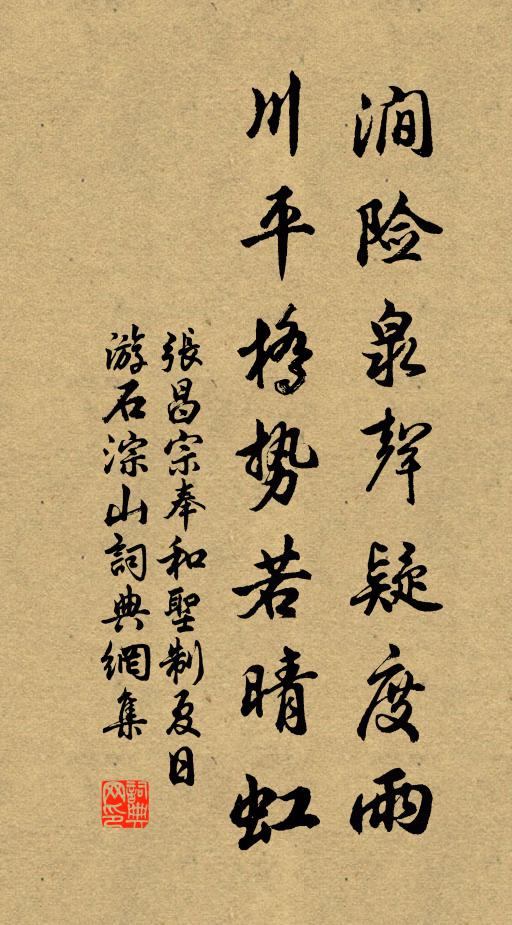 澗險泉聲疑度雨
川平橋勢若晴虹
張昌宗奉和聖制夏日
游石淙山詞典網集
詞典網印